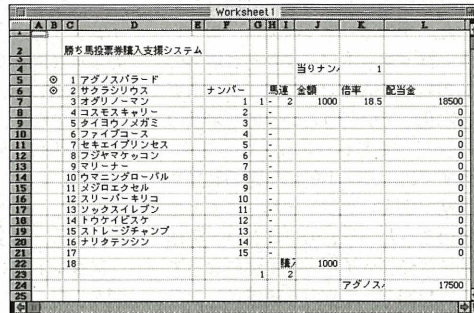 Worksheet1
A B C D E F G H I J K L
1
2 勝ち馬投票券購入支援システム
3
4 当りナン 1
5 ◎ 1 アグノスパラード
6 ◎ 2 サクラシリウス ナンバー 馬連 金額 倍率 配当金
7 3 オグリノーマン 1 1 - 2 1000 18.5 18500
8 4 コスモスキャリー 2 - 0
9 5 タイヨウノメガミ 3 - 0
10 6 ファイブコース 4 - 0
11 7 セキエイプリンセス 5 - 0
12 8 フジヤマケッコン 6 - 0
13 9 マリーナー 7 - 0
14 10 ウマニングローバル 8 - 0
15 11 メジロエクセル 9 - 0
16 12 スリーパーキリコ 10 - 0
17 13 ソックスイレブン 11 - 0
18 14 トウケイビスケ 12 - 0
19 15 ストレージチャンプ 13 - 0
20 16 ナリタテンシン 14 - 0
21 17 15 - 0
22 18 購入 1000
23 1 2
24 アグノス 17500
25